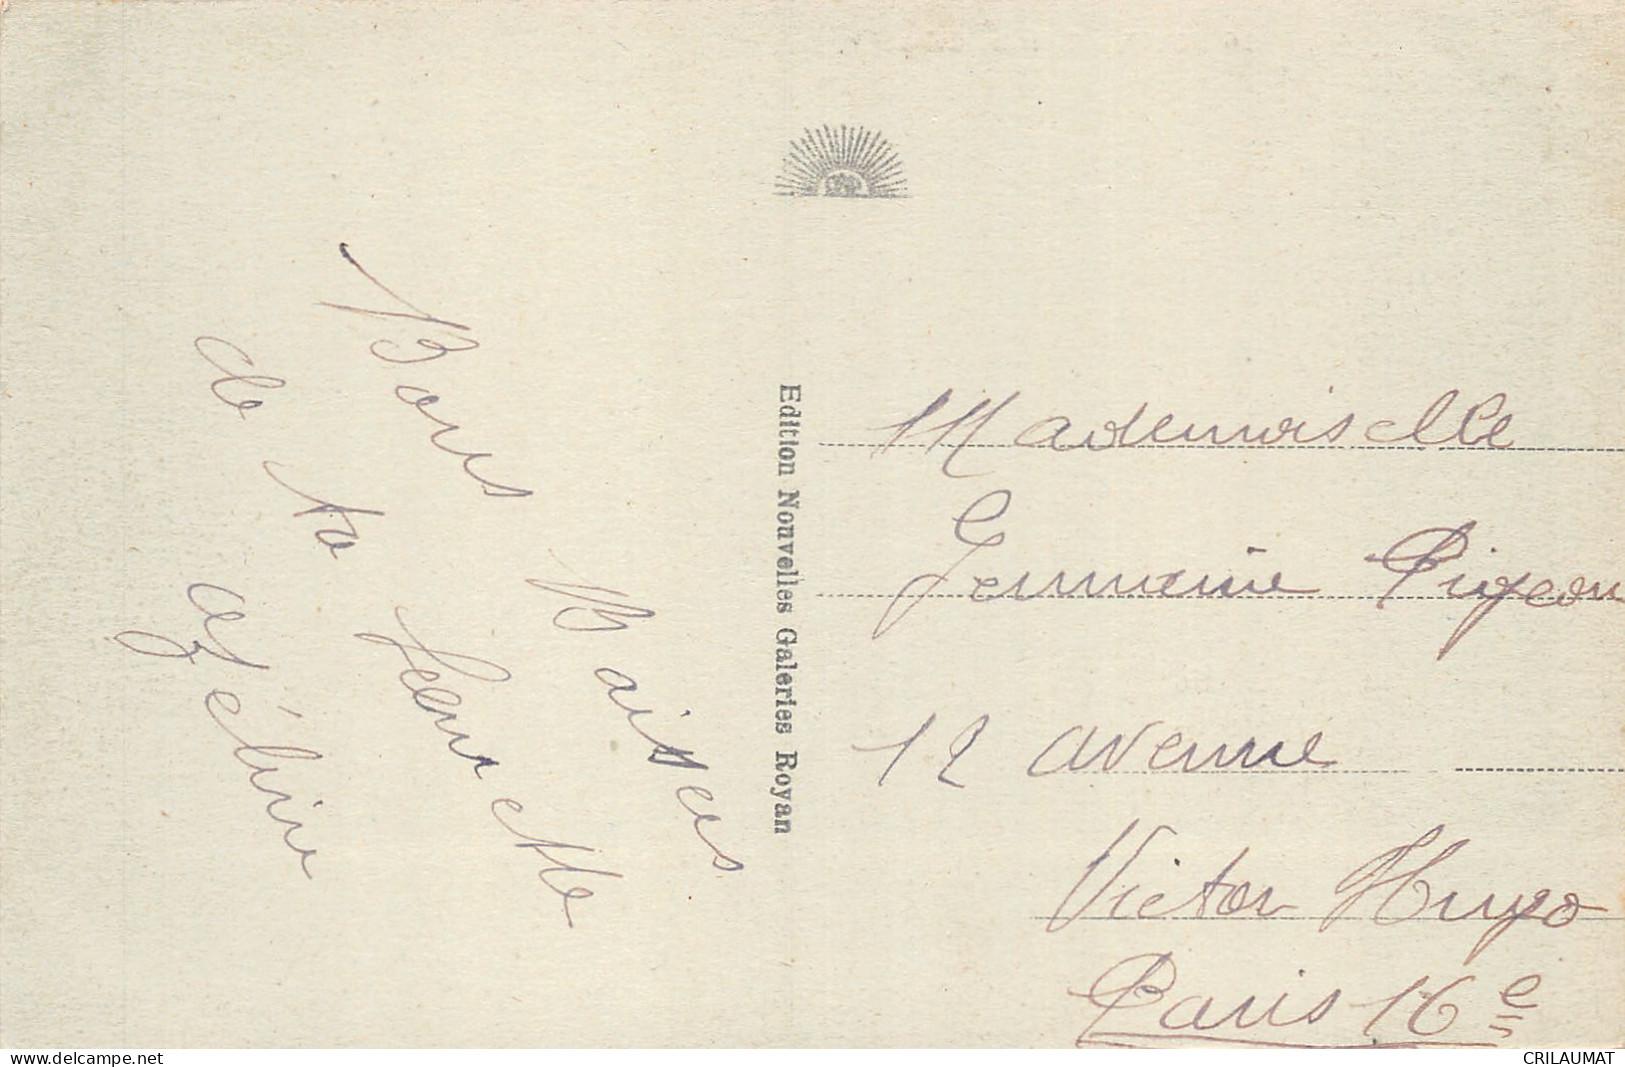 Bons Baisers
de ta
Edition Nouvelles Galeries Royan
Mademoiselle
Germaine Pigeon
12 avenue
Victor Hugo
Paris 16e
www.delcampe.net
CRILAUMAT